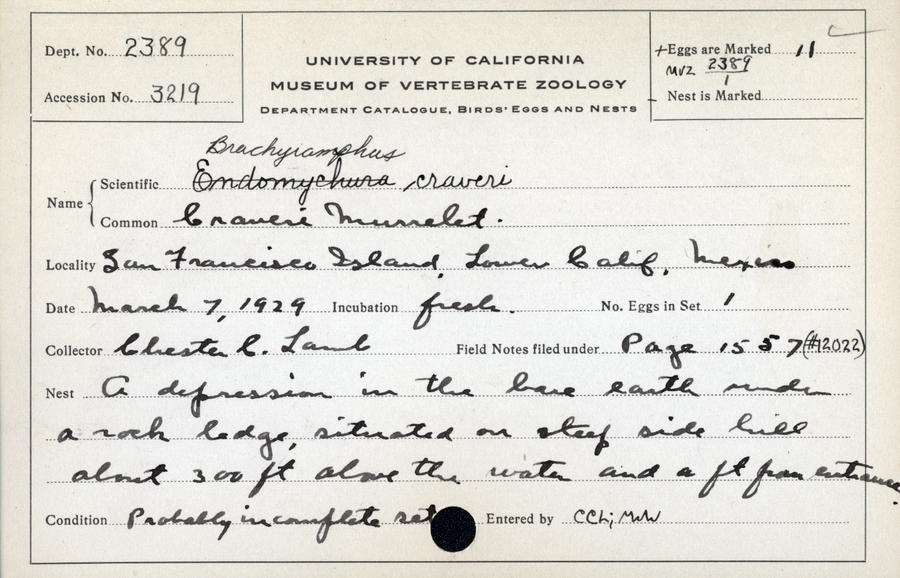 Dept. No. 2389
Accession No. 3219
UNIVERSITY OF CALIFORNIA
MUSEUM OF VERTEBRATE ZOOLOGY
DEPARTMENT CATALOGUE, BIRDS' EGGS AND NESTS
+Eggs are Marked 11
MVZ 2389/1
- Nest is Marked
Brachyramphus
Name { Scientific Endomychura craveri
Common Craveri Murrelet.
Locality San Francisco Island, Lower Calif, Mexico
Date March 7, 1929 Incubation fresh. No. Eggs in Set 1
Collector Chester C. Lamb Field Notes filed under Page 1557 (#12022)
Nest A depression in the bare earth under
a rock ledge, situated on steep side hill
about 300 ft above the water and a ft from entrance.
Condition Probably incomplete set Entered by CCL; MWW